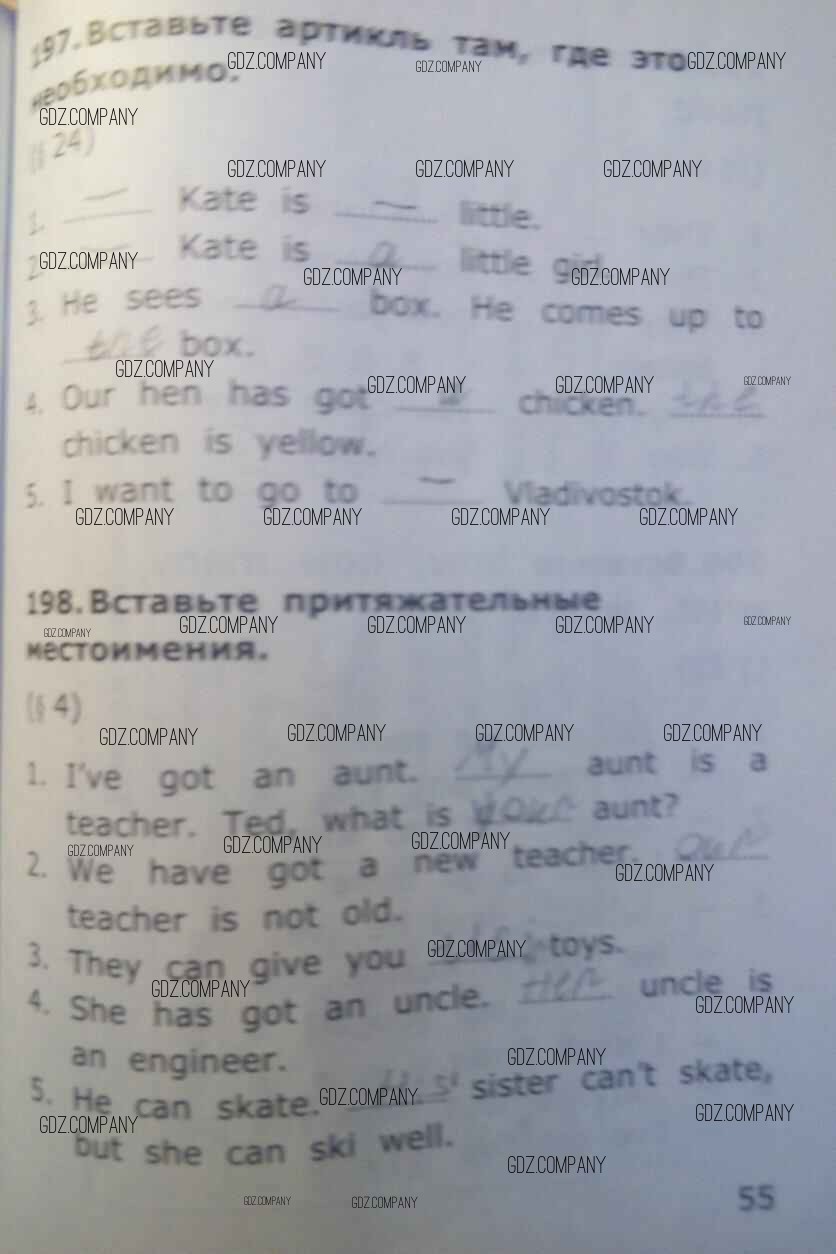 197. Вставьте артикль там, где это
необходимо.
(§ 24)
1. — Kate is — little.
2. — Kate is a little girl.
3. He sees a box. He comes up to
the box.
4. Our hen has got a chicken. the
chicken is yellow.
5. I want to go to — Vladivostok.
198. Вставьте притяжательные
местоимения.
(§ 4)
1. I've got an aunt. My aunt is a
teacher. Ted, what is your aunt?
2. We have got a new teacher. Our
teacher is not old.
3. They can give you toys.
4. She has got an uncle. Her uncle is
an engineer.
5. He can skate. His sister can't skate,
but she can ski well.
55
GDZ.COMPANY